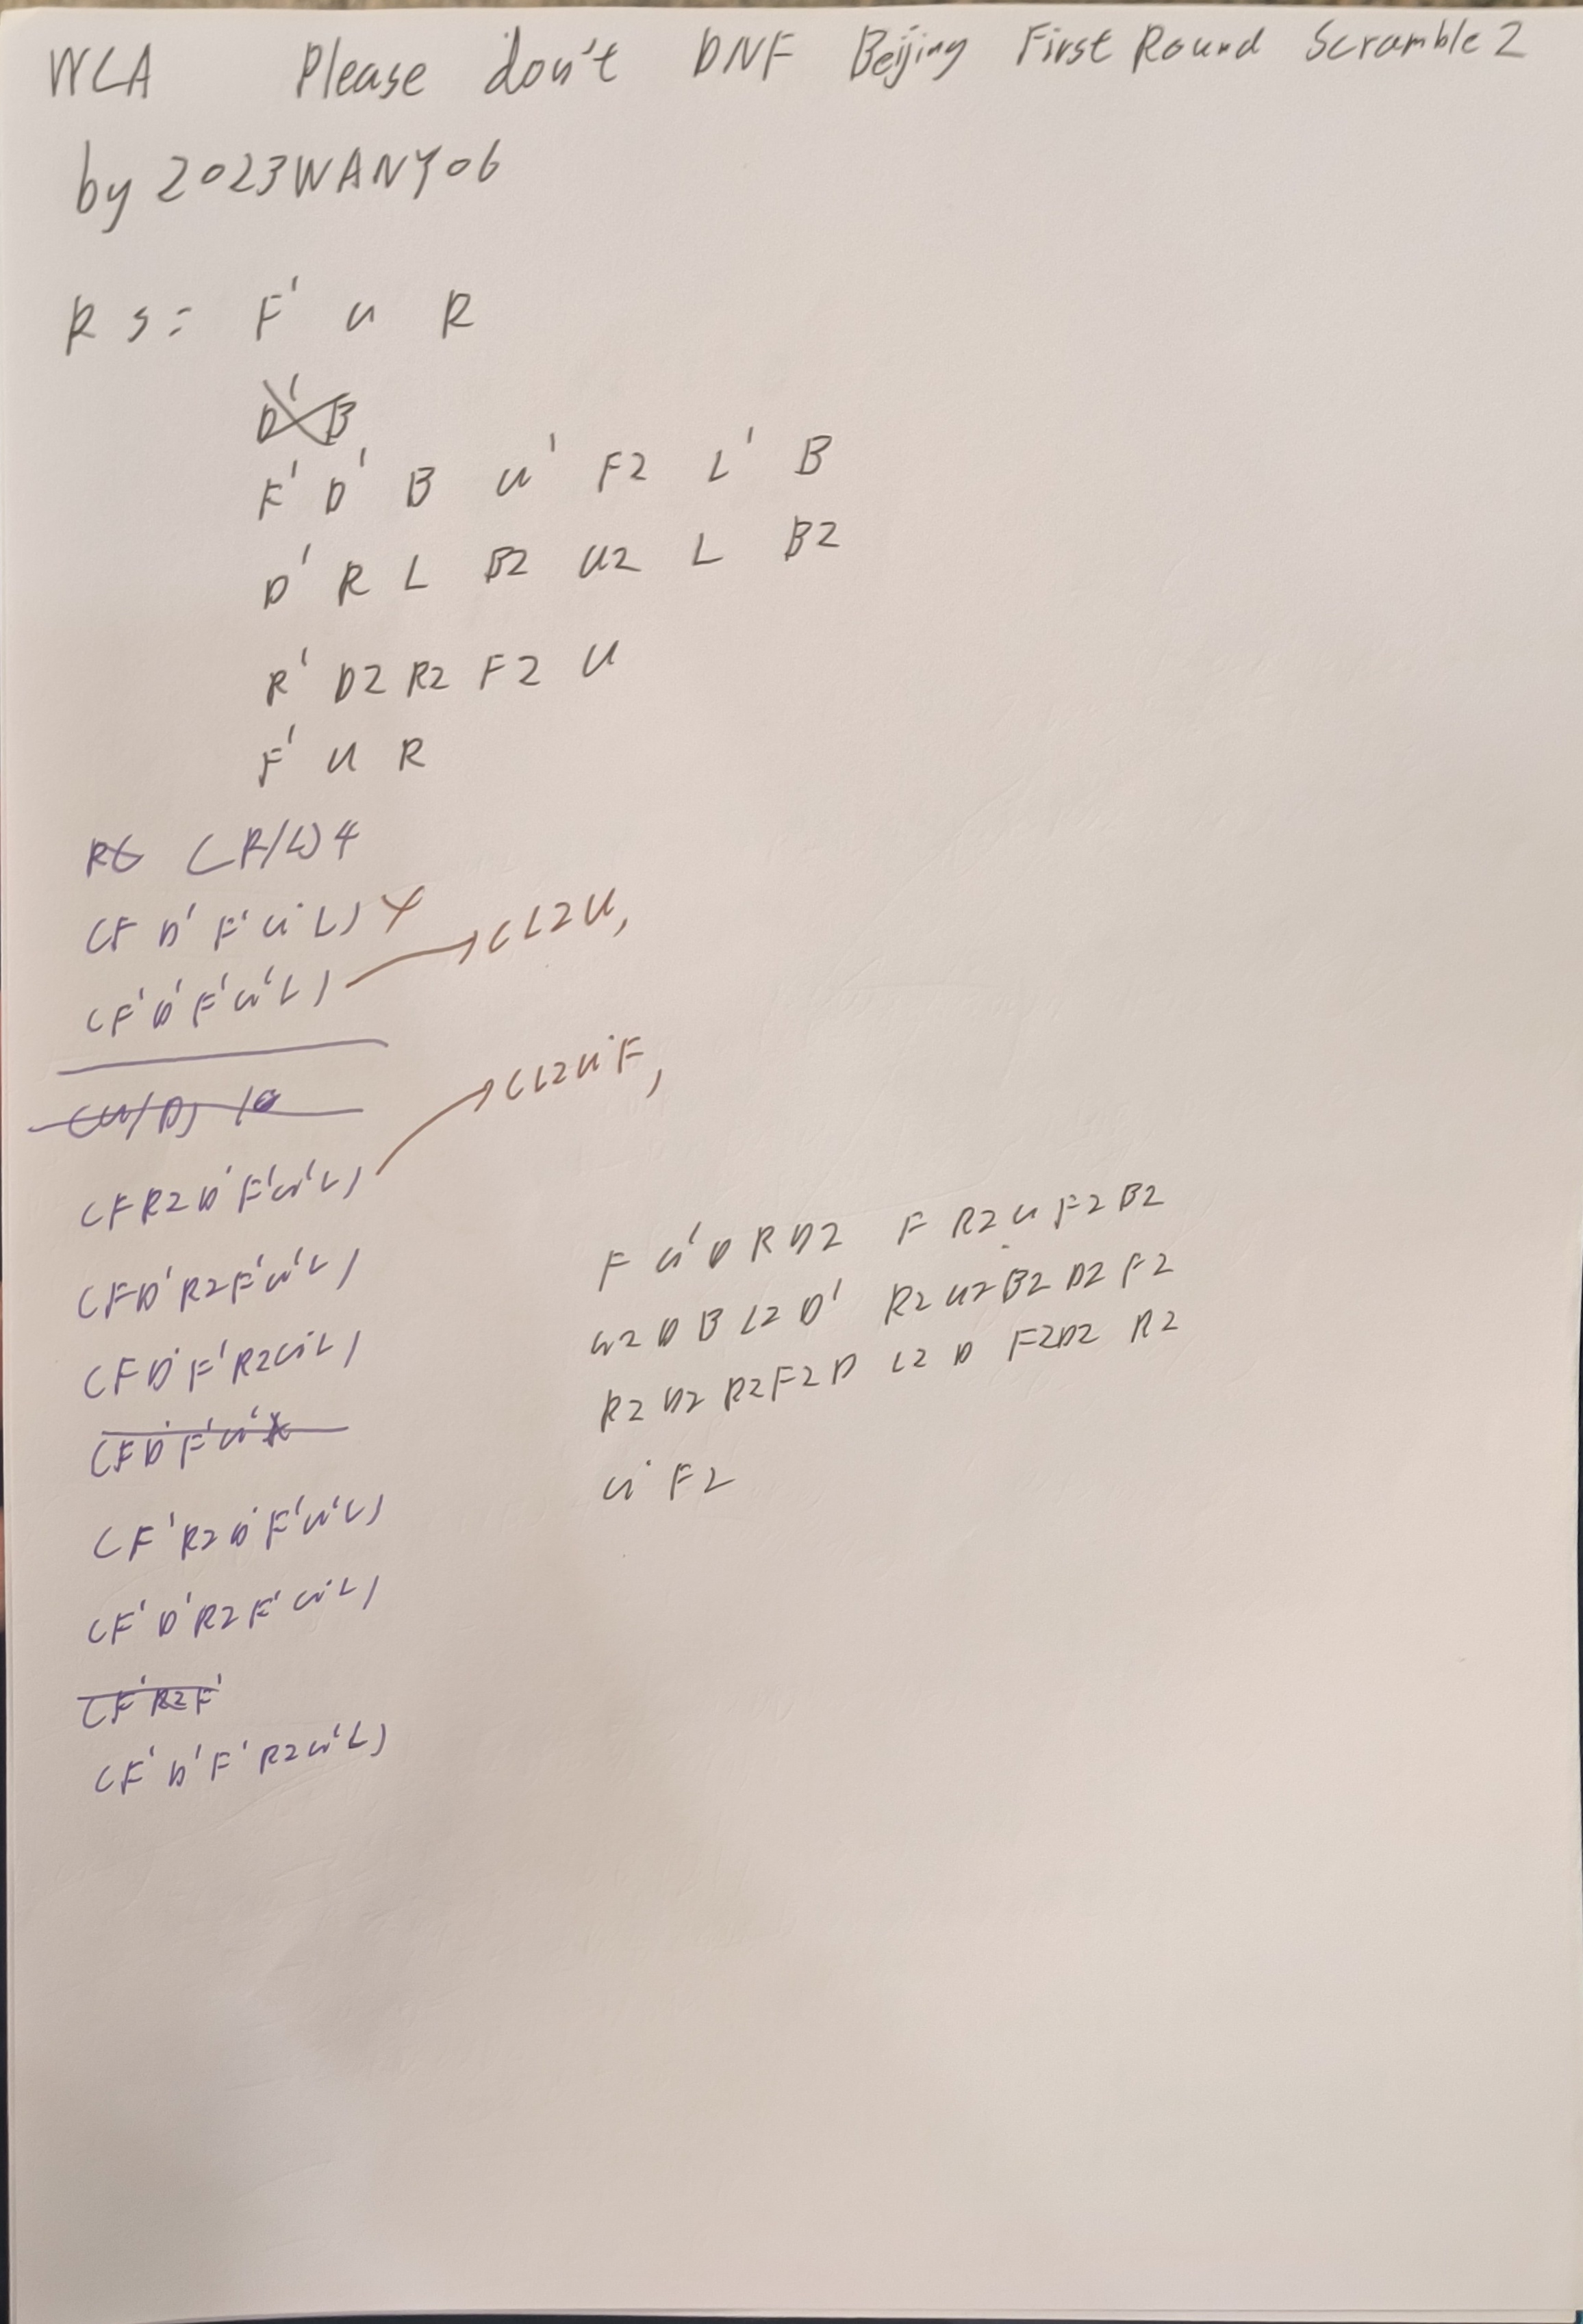 WCA Please don't DNF Beijing First Round Scramble 2
by 2023WANY06
R S: F' U R
D' B
F' D' B U' F2 L' B
D' R L B2 U2 L B2
R' D2 R2 F2 U
F' U R
(R/L) 4
(F D' F' U' L) 4
(L2 U,
(F' D' F' U' L)
(U/D) 10
(L2 U' F,
(F R2 D' F' U' L)
(F D' R2 F' U' L)
(F D' F' R2 U' L)
(F D' F' U'
(F' R2 D' F' U' L)
(F' D' R2 F' U' L)
(F' R2 F'
(F' D' F' R2 U' L)
F U' D R D2 F R2 U F2 B2
U2 D B L2 D' R2 U2 B2 D2 F2
R2 D2 R2 F2 D L2 D F2 D2 R2
U' F2